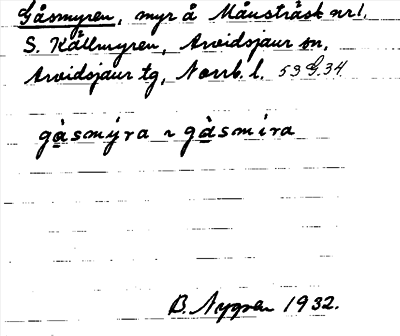 Gåsmyren, myr å Månsträsk nr 1,
S. Källmyren, Arvidsjaur sn,
Arvidsjaur tg, Norrb. l. 53 G. 34
gàsmýra ~ gàsmira
B. Nygren 1932.